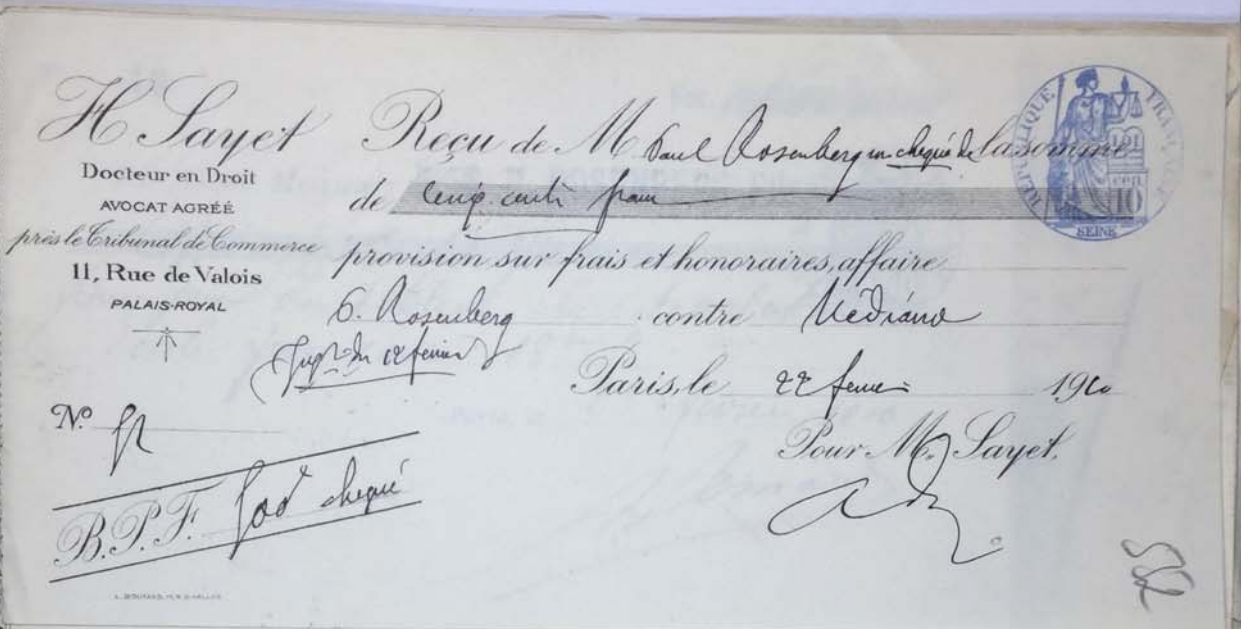 H Sayet
Docteur en Droit
AVOCAT AGRÉÉ
près le Tribunal de Commerce
11, Rue de Valois
PALAIS-ROYAL
Reçu de M Paul Rosenberg en chèque de la somme
de Cinq cents francs
provision sur frais et honoraires, affaire
P. Rosenberg contre
(Jugt du 12 février)
Paris, le 22 février 1910
Pour Me Sayet,
No 52
B.P.F. 500 chèque
RÉPUBLIQUE FRANÇAISE
CEN
10
SEINE